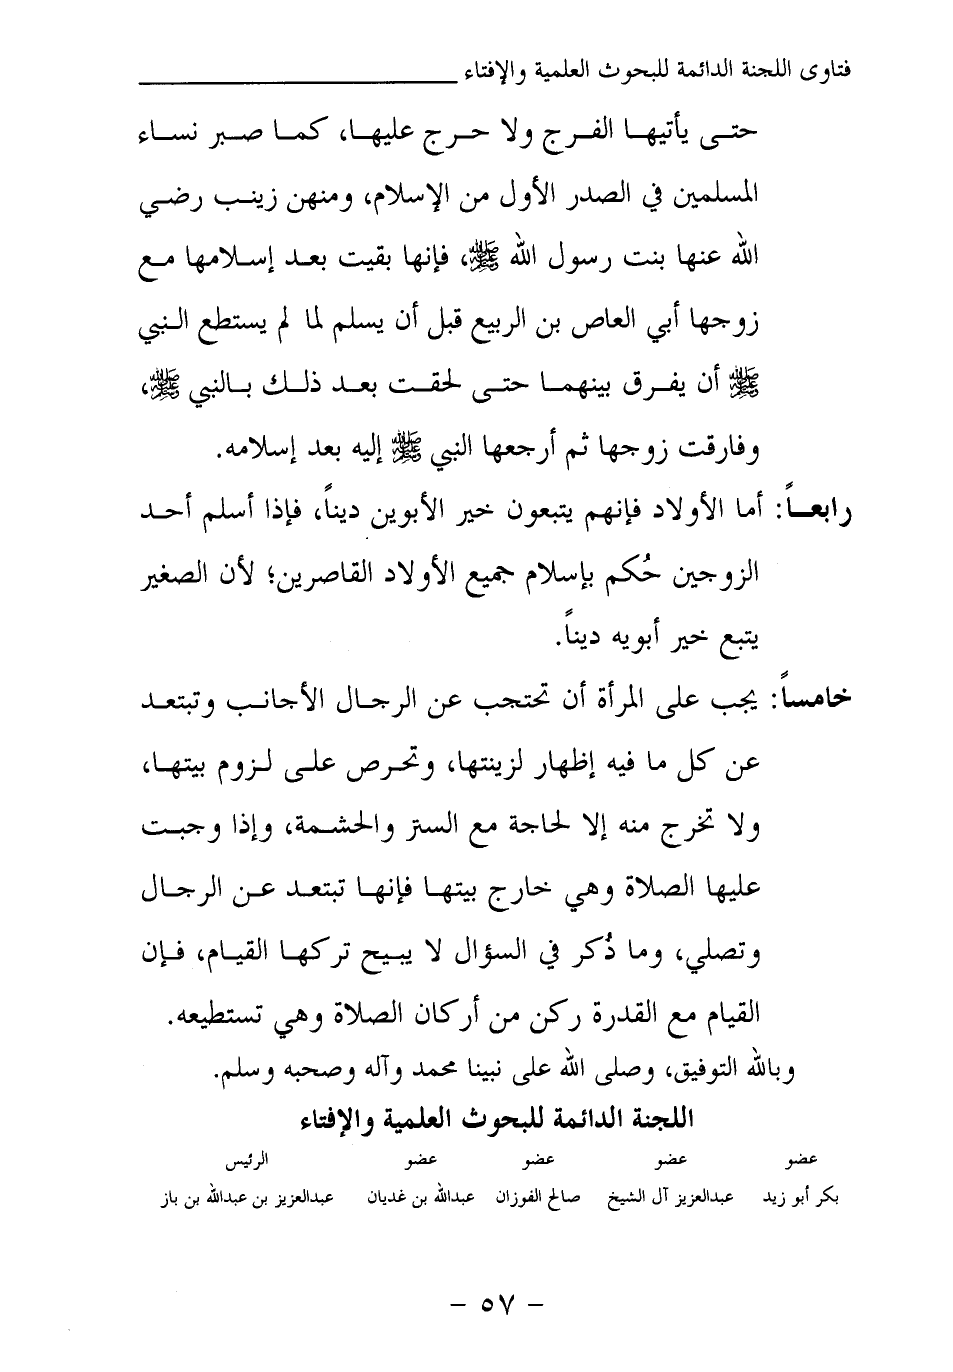 فتاوى اللجنة الدائمة للبحوث العلمية والإفتاء
حتى يأتيها الفرج ولا حرج عليها، كما صبر نساء
المسلمين في الصدر الأول من الإسلام، ومنهن زينب رضي
الله عنها بنت رسول الله ﷺ، فإنها بقيت بعد إسلامها مع
زوجها أبي العاص بن الربيع قبل أن يسلم لما لم يستطع النبي
ﷺ أن يفرق بينهما حتى لحقت بعد ذلك بالنبي ﷺ،
وفارقت زوجها ثم أرجعها النبي ﷺ إليه بعد إسلامه.
رابعاً: أما الأولاد فإنهم يتبعون خير الأبوين ديناً، فإذا أسلم أحد
الزوجين حُكم بإسلام جميع الأولاد القاصرين؛ لأن الصغير
يتبع خير أبويه ديناً.
خامساً: يجب على المرأة أن تحتجب عن الرجال الأجانب وتبتعد
عن كل ما فيه إظهار لزينتها، وتحرص على لزوم بيتها،
ولا تخرج منه إلا لحاجة مع الستر والحشمة، وإذا وجبت
عليها الصلاة وهي خارج بيتها فإنها تبتعد عن الرجال
وتصلي، وما ذُكر في السؤال لا يبيح تركها القيام، فإن
القيام مع القدرة ركن من أركان الصلاة وهي تستطيعه.
وبالله التوفيق، وصلى الله على نبينا محمد وآله وصحبه وسلم.
اللجنة الدائمة للبحوث العلمية والإفتاء
عضو عضو عضو عضو الرئيس
بكر أبو زيد عبدالعزيز آل الشيخ صالح الفوزان عبدالله بن غديان عبدالعزيز بن عبدالله بن باز
- ٥٧ -